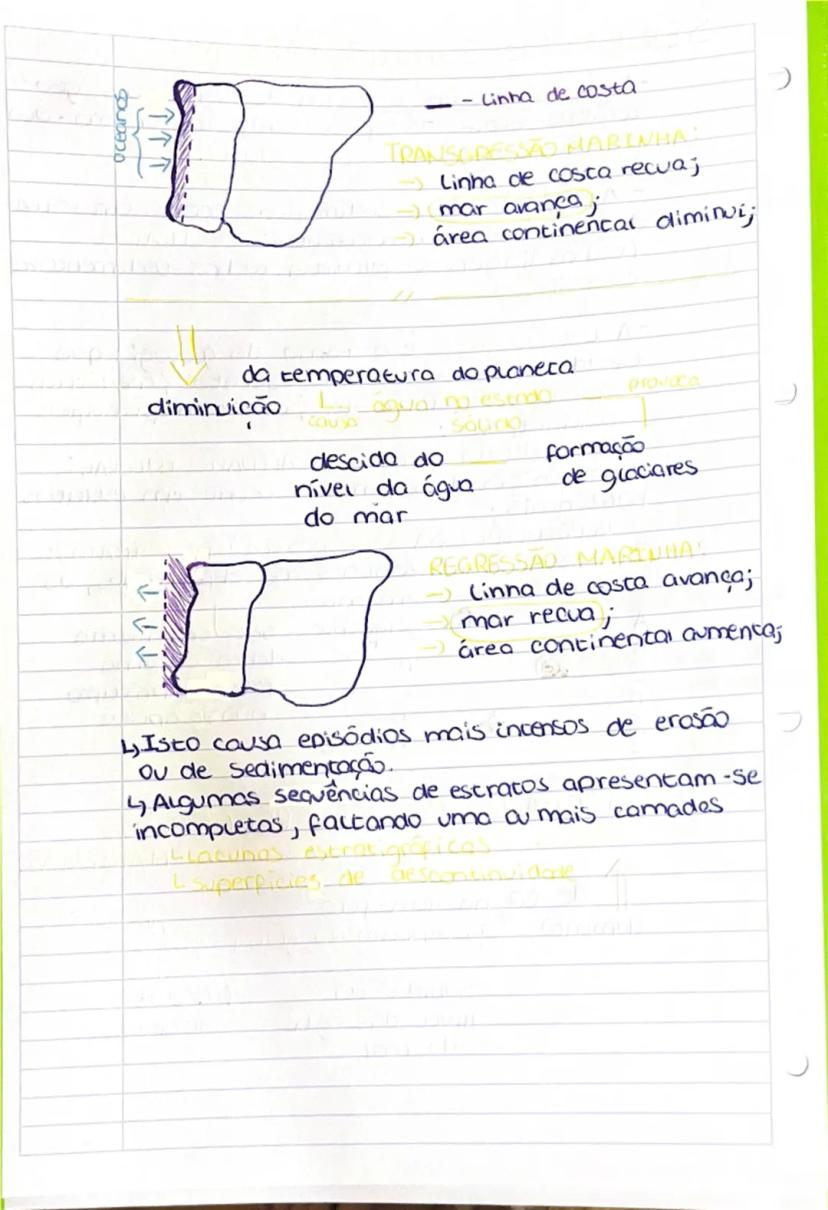 oceanos
— - Linha de costa
TRANSGRESSÃO MARINHA:
→ Linha de costa recua;
→ mar avança;
→ área continental diminui;
//
da temperatura do planeta
diminuição ↳ água no estado provoca
causa sólido
descida do formação
nível da água de glaciares
do mar
REGRESSÃO MARINHA:
→ Linha de costa avança;
→ mar recua;
→ área continental aumenta;
↳ Isto causa episódios mais intensos de erosão
ou de sedimentação.
↳ Algumas sequências de estratos apresentam-se
incompletas, faltando uma ou mais camadas
↳ Lacunas estratigráficas
↳ superfícies de descontinuidade